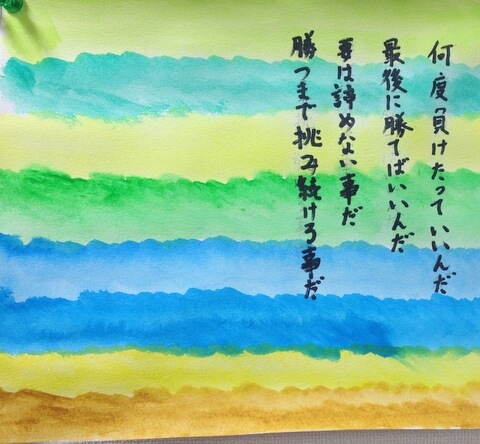 何度負けたっていいんだ
最後に勝てばいいんだ
要は諦めない事だ
勝つまで挑み続ける事だ